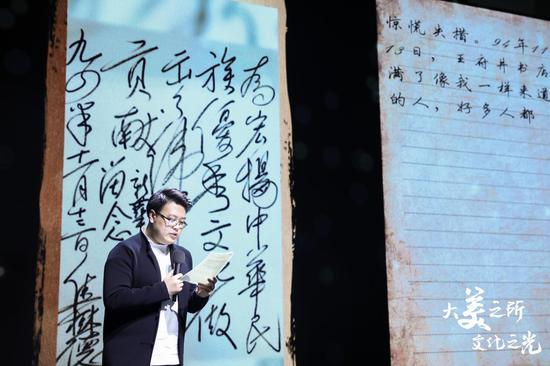 為宏揚中華民
族優秀文化做
出了
貢献 留念
九四年十一月十三日
惊慌失措。94年11
13日，王府井书店
满了像我一样来道
的人，好多人都
大美之所
文化之光